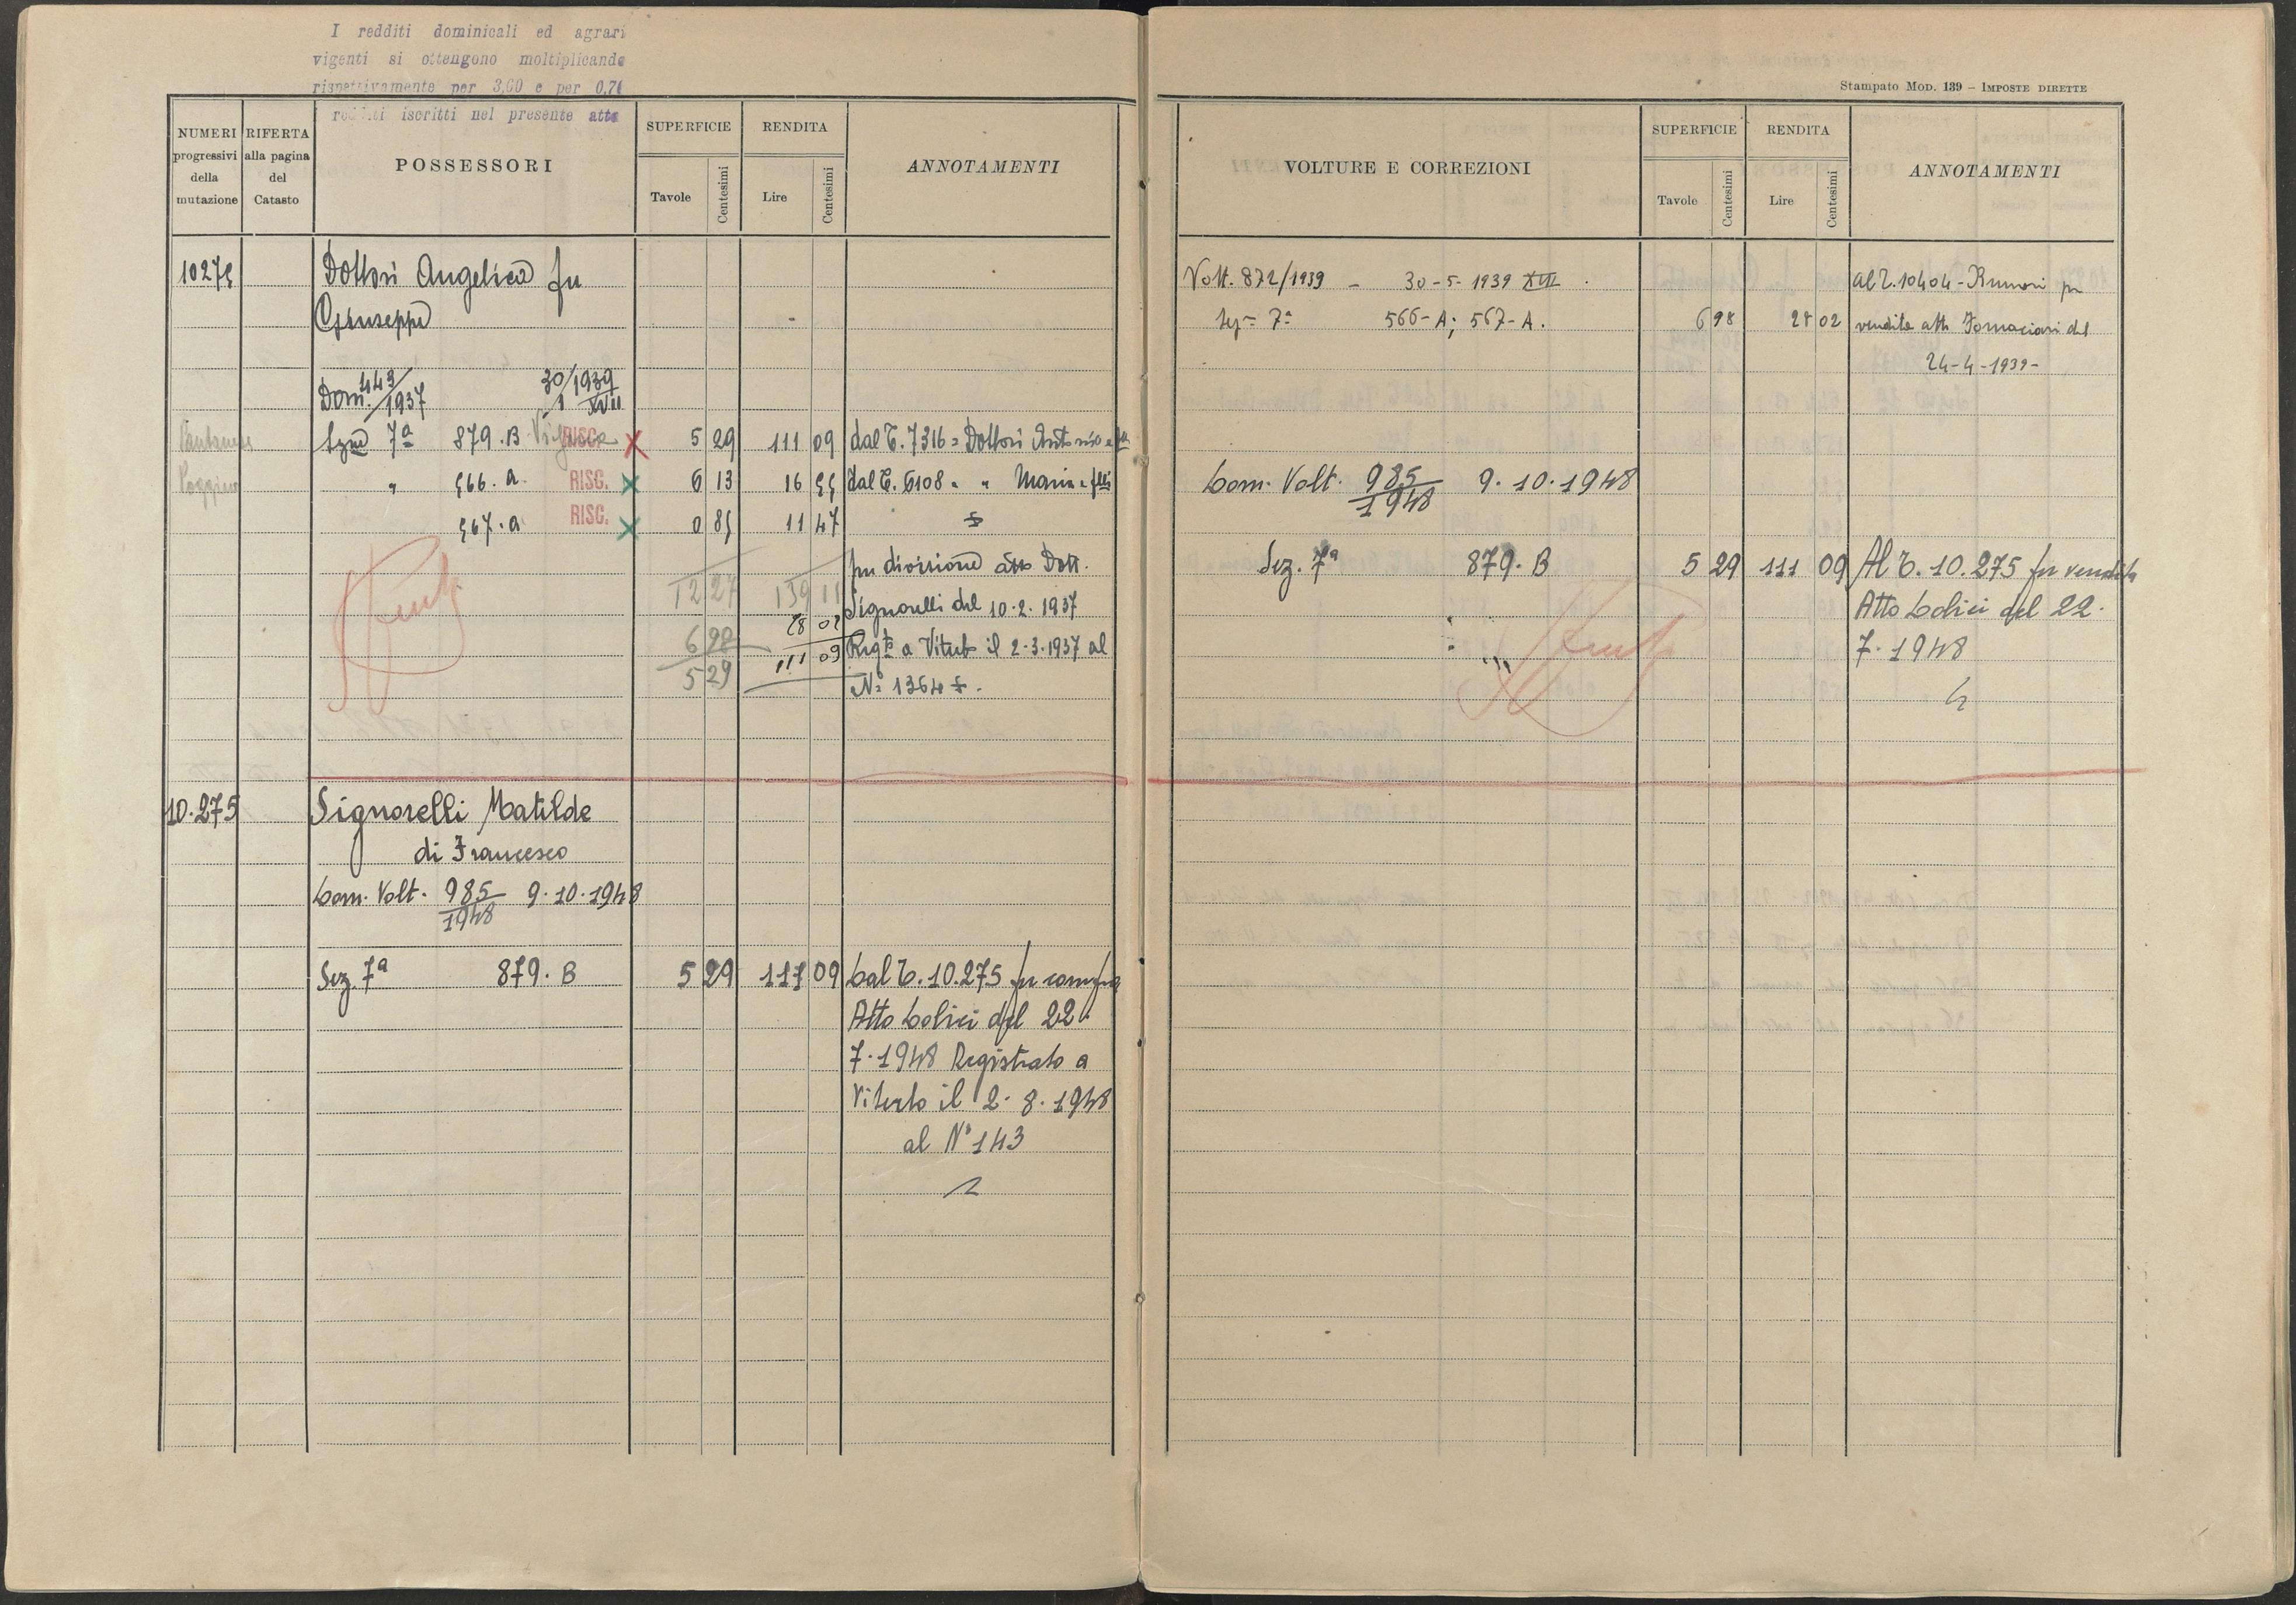 I redditi dominicali ed agrari
vigenti si ottengono moltiplicando
rispettivamente per 3,60 e per 0,70
redditi iscritti nel presente atto
NUMERI progressivi della mutazione
RIFERTA alla pagina del Catasto
POSSESSORI
SUPERFICIE
Tavole Centesimi
RENDITA
Lire Centesimi
ANNOTAMENTI
10275 Dottori Angelica fu
Giuseppe
Dom. 443/1937 30/1 1939 XVII
Sezne 7a 879.B RISC. X 5 29 111 09 dal T. 7316 = Dottori Antonio e
" 566.a RISC. X 6 13 16 55 dal T. 6108 " " Maria e flli
567.a RISC. X 0 85 11 47
per divisione atto Dott.
12 27 139 11 Signorelli del 10.2.1937
6 98 28 02 Regto a Viterbo il 2.3.1937 al
5 29 111 09 No 1364
10.275 Signorelli Matilde
di Francesco
Com. Volt. 985/1948 9.10.1948
Sez. 7a 879.B 5 29 111 09 Dal T. 10.275 per compra
Atto Lolici del 22.
7.1948 Registrato a
Viterbo il 2.8.1948
al No 143
Stampato Mod. 139 – Imposte dirette
VOLTURE E CORREZIONI
SUPERFICIE
Tavole Centesimi
RENDITA
Lire Centesimi
ANNOTAMENTI
Volt. 872/1939 – 30-5-1939 XVII al T. 10404 - per
Sez= 7a 566-A; 567-A. 6 98 28 02 vendita atto Fornaciari del
24-4-1939-
Com. Volt. 985/1948 9.10.1948
Sez. 7a 879.B 5 29 111 09 Al T. 10.275 per vendita
Atto Lolici del 22.
7.1948